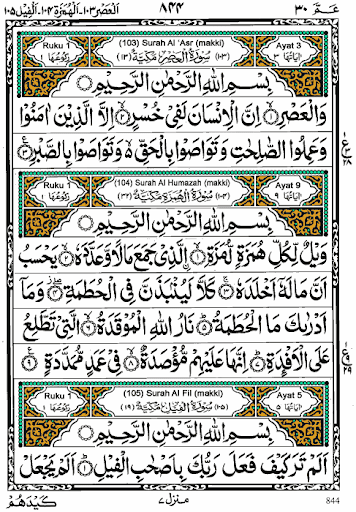 عـمّ ٣٠ ٨٤٤ العصر ١٠٣، الهمزة ١٠٤، الفيل ١٠٥
Ruku 1 (103) Surah Al 'Asr (makki) Ayat 3
اٰيَاتُهَا ٣ (١٠٣) سُوْرَةُ الْعَصْرِ مَكِّيَّةٌ (١٣) رُكُوْعُهَا ١
بِسْمِ اللّٰهِ الرَّحْمٰنِ الرَّحِيْمِ
وَالْعَصْرِ ۙ﴿١﴾ اِنَّ الْاِنْسَانَ لَفِيْ خُسْرٍ ۙ﴿٢﴾ اِلَّا الَّذِيْنَ اٰمَنُوْا
وَعَمِلُوا الصّٰلِحٰتِ وَتَوَاصَوْا بِالْحَقِّ ۙ وَتَوَاصَوْا بِالصَّبْرِ ﴿٣﴾
ع ٢٨
Ruku 1 (104) Surah Al Humazah (makki) Ayat 9
اٰيَاتُهَا ٩ (١٠٤) سُوْرَةُ الْهُمَزَةِ مَكِّيَّةٌ (٣٢) رُكُوْعُهَا ١
بِسْمِ اللّٰهِ الرَّحْمٰنِ الرَّحِيْمِ
وَيْلٌ لِّكُلِّ هُمَزَةٍ لُّمَزَةِ ۙ﴿١﴾ الَّذِيْ جَمَعَ مَالًا وَّعَدَّدَهٗ ۙ﴿٢﴾ يَحْسَبُ
اَنَّ مَالَهٗٓ اَخْلَدَهٗ ۚ﴿٣﴾ كَلَّا لَيُنْۢبَذَنَّ فِي الْحُطَمَةِ ۖ﴿٤﴾ وَمَآ
اَدْرٰىكَ مَا الْحُطَمَةُ ؕ﴿٥﴾ نَارُ اللّٰهِ الْمُوْقَدَةُ ۙ﴿٦﴾ الَّتِيْ تَطَّلِعُ
عَلَى الْاَفْـِٕدَةِ ؕ﴿٧﴾ اِنَّهَا عَلَيْهِمْ مُّؤْصَدَةٌ ۙ﴿٨﴾ فِيْ عَمَدٍ مُّمَدَّدَةٍ ﴿٩﴾
ع ٢٩
Ruku 1 (105) Surah Al Fil (makki) Ayat 5
اٰيَاتُهَا ٥ (١٠٥) سُوْرَةُ الْفِيْلِ مَكِّيَّةٌ (١٩) رُكُوْعُهَا ١
بِسْمِ اللّٰهِ الرَّحْمٰنِ الرَّحِيْمِ
اَلَمْ تَرَ كَيْفَ فَعَلَ رَبُّكَ بِاَصْحٰبِ الْفِيْلِ ؕ﴿١﴾ اَلَمْ يَجْعَلْ
844 منزل ٧ كَيْدَهُمْ